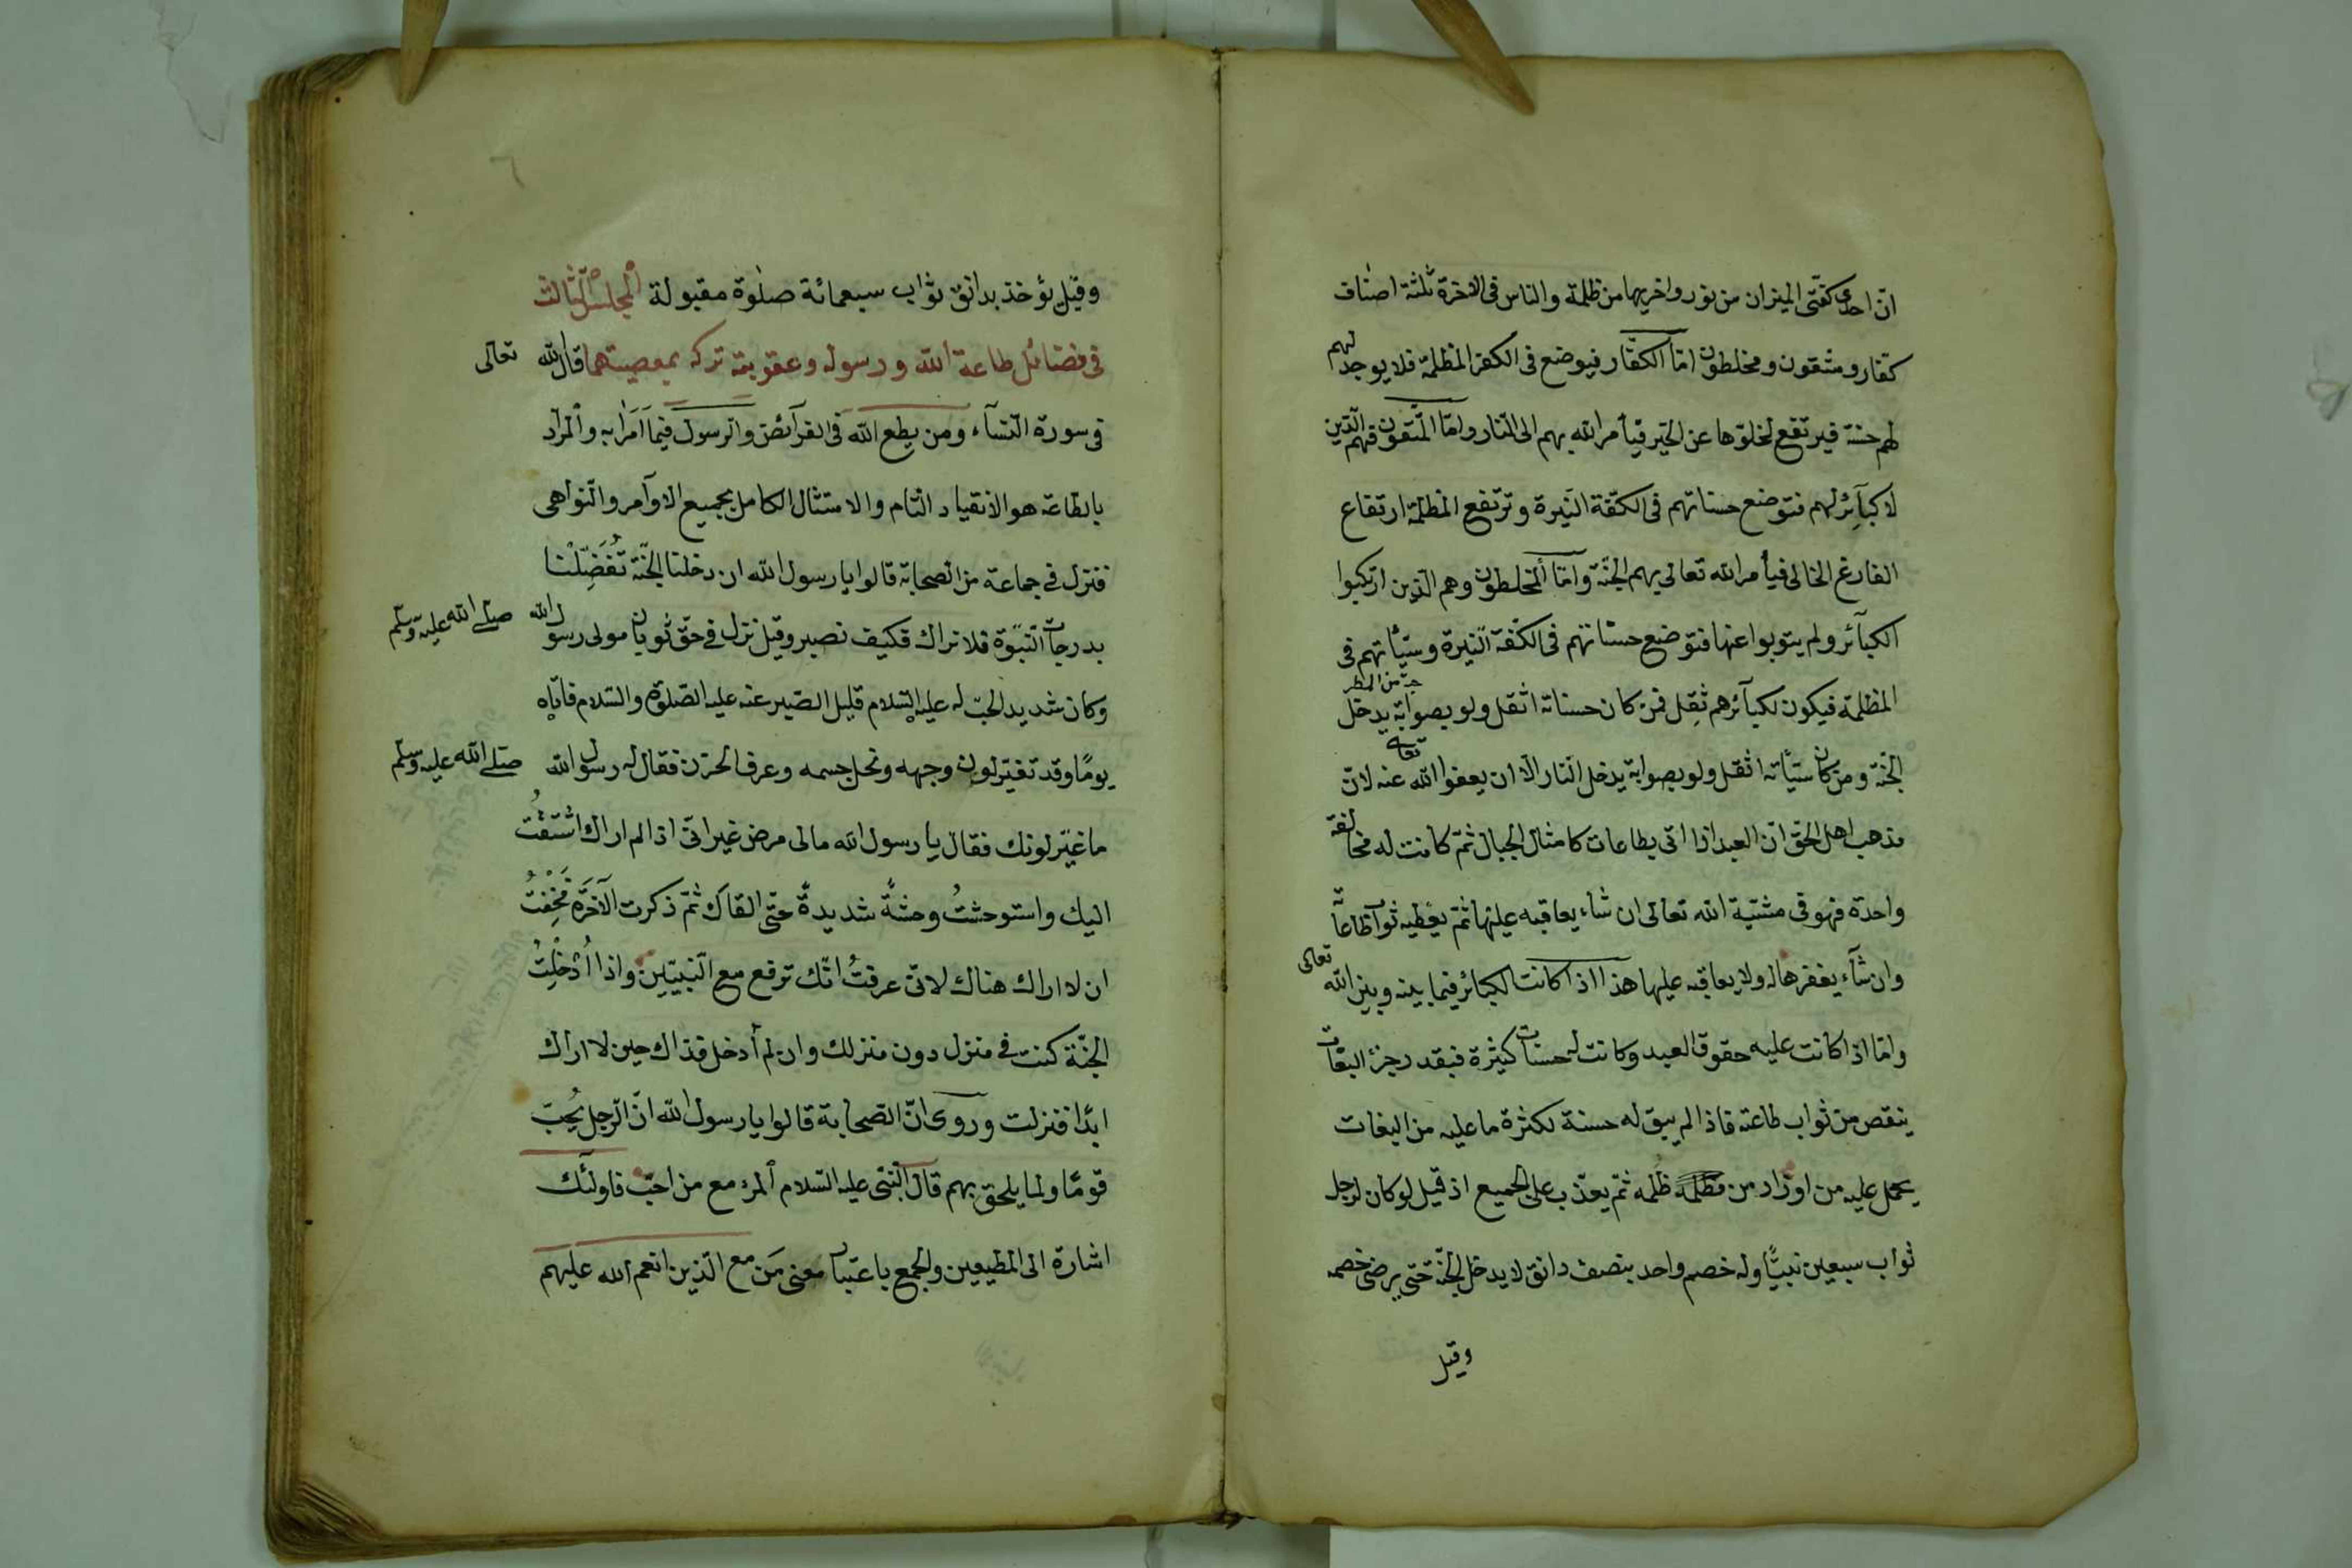 انّ احدى كفتى الميزان من نور واخريها من ظلمة والناس فى الاخرة ثلثة اصناف
كفّار ومتّقون ومخلطون امّا الكفّار فيوضع فى الكفة المظلمة فلا يوجد لهم
لهم حسنة فيرتفع لخلوّها عن الخير فيأمر الله بهم الى النار وامّا المتّقون فهم الّذين
لا كبآئر لهم فتوضع حسناتهم فى الكفّة النيرة وترتفع المظلمة ارتفاع
الفارغ الخالى فيأمر الله تعالى بهم الجنّة وامّا المخلطون وهم الّذين ارتكبوا
الكبآئر ولم يتوبوا عنها فتوضع حسناتهم فى الكفّة النّيرة وسيّأتهم فى
المظلمة فيكون لكبآئرهم ثِقل فمن كان حسناته اثقل ولو بصوابة يدخل
الجنّة ومن كان سيّأته اثقل ولو بصوابة يدخل النّار الّا ان يعفوا الله تعالى عنه لانّ
مذهب اهل الحقّ انّ العبد اذا اتى بطاعات كامثال الجبال ثمّ كانت له مخالفة
واحدة فهو فى مشيّة الله تعالى ان شاء يعاقبه عليها ثمّ يعطيه ثواب طاعاته
وان شآء يغفرها له ولا يعاقبه عليها هذا اذا كانت الكبائر فيما بينه وبين الله تعالى
وامّا اذا كانت عليه حقوق العبد وكانت له حسنات كثيرة فبقدر جزء التبعات
ينقص من ثواب طاعته فاذا لم يبق له حسنة لكثرة ما عليه من التبعات
يحمل عليه من اوزار من ظلمه ثمّ يعذّب على الجميع اذ قيل لو كان لرجل
ثواب سبعين نبيًّا وله خصم واحد بنصف دانق لا يدخل الجنّة حتى يرضى خصمه
وقيل
وقيل يؤخذ بدانق ثواب سبعمائة صلوة مقبولة المجلس الثالث
فى فضائل طاعة الله ورسوله وعقوبة تركه بمعصيتهما قال الله تعالى
فى سورة النّسآء ومن يطع الله فى الفرآئض والرسول فيما امر به والمراد
بالطاعة هو الانقياد التام والامتثال الكامل بجميع الاوآمر والنّواهى
فنزل فى جماعة من الصحابة قالوا يا رسول الله ان دخلنا الجنّة تُفَضِّلْنا
بدرجات النّبوّة فلا نراك فكيف نصير وقيل نزل فى حقّ ثوبان مولى رسول الله صلى الله عليه وسلم
وكان شديد الحبّ له عليه السّلام قليل الصّبر عنه عليه الصّلوة والسّلام فاتاه
يومًا وقد تغيّر لون وجهه ونحل جسمه وعرف الحزن فقال له رسول الله صلى الله عليه وسلم
ما غيّر لونك فقال يا رسول الله ما لى مرض غير انّى اذا لم اراك اشتقتُ
اليك واستوحشتُ وحشةً شديدةً حتّى القاك ثمّ ذكرت الآخرة فَخِفْتُ
ان لا اراك هناك لانّى عرفتُ انّك ترفع مع النّبيّين واذا اُدْخِلْتُ
الجنّة كنت فى منزل دون منزلك وان لم أدخل فذاك حين لا اراك
ابدًا فنزلت وروى انّ الصحابة قالوا يا رسول الله انّ الرجل يُحِبّ
قومًا ولما يلحق بهم قال النّبىّ عليه السّلام المرء مع من احبّ فاولئك
اشارة الى المطيعين والجمع باعتبار معنى مَن مع الّذين انعم الله عليهم